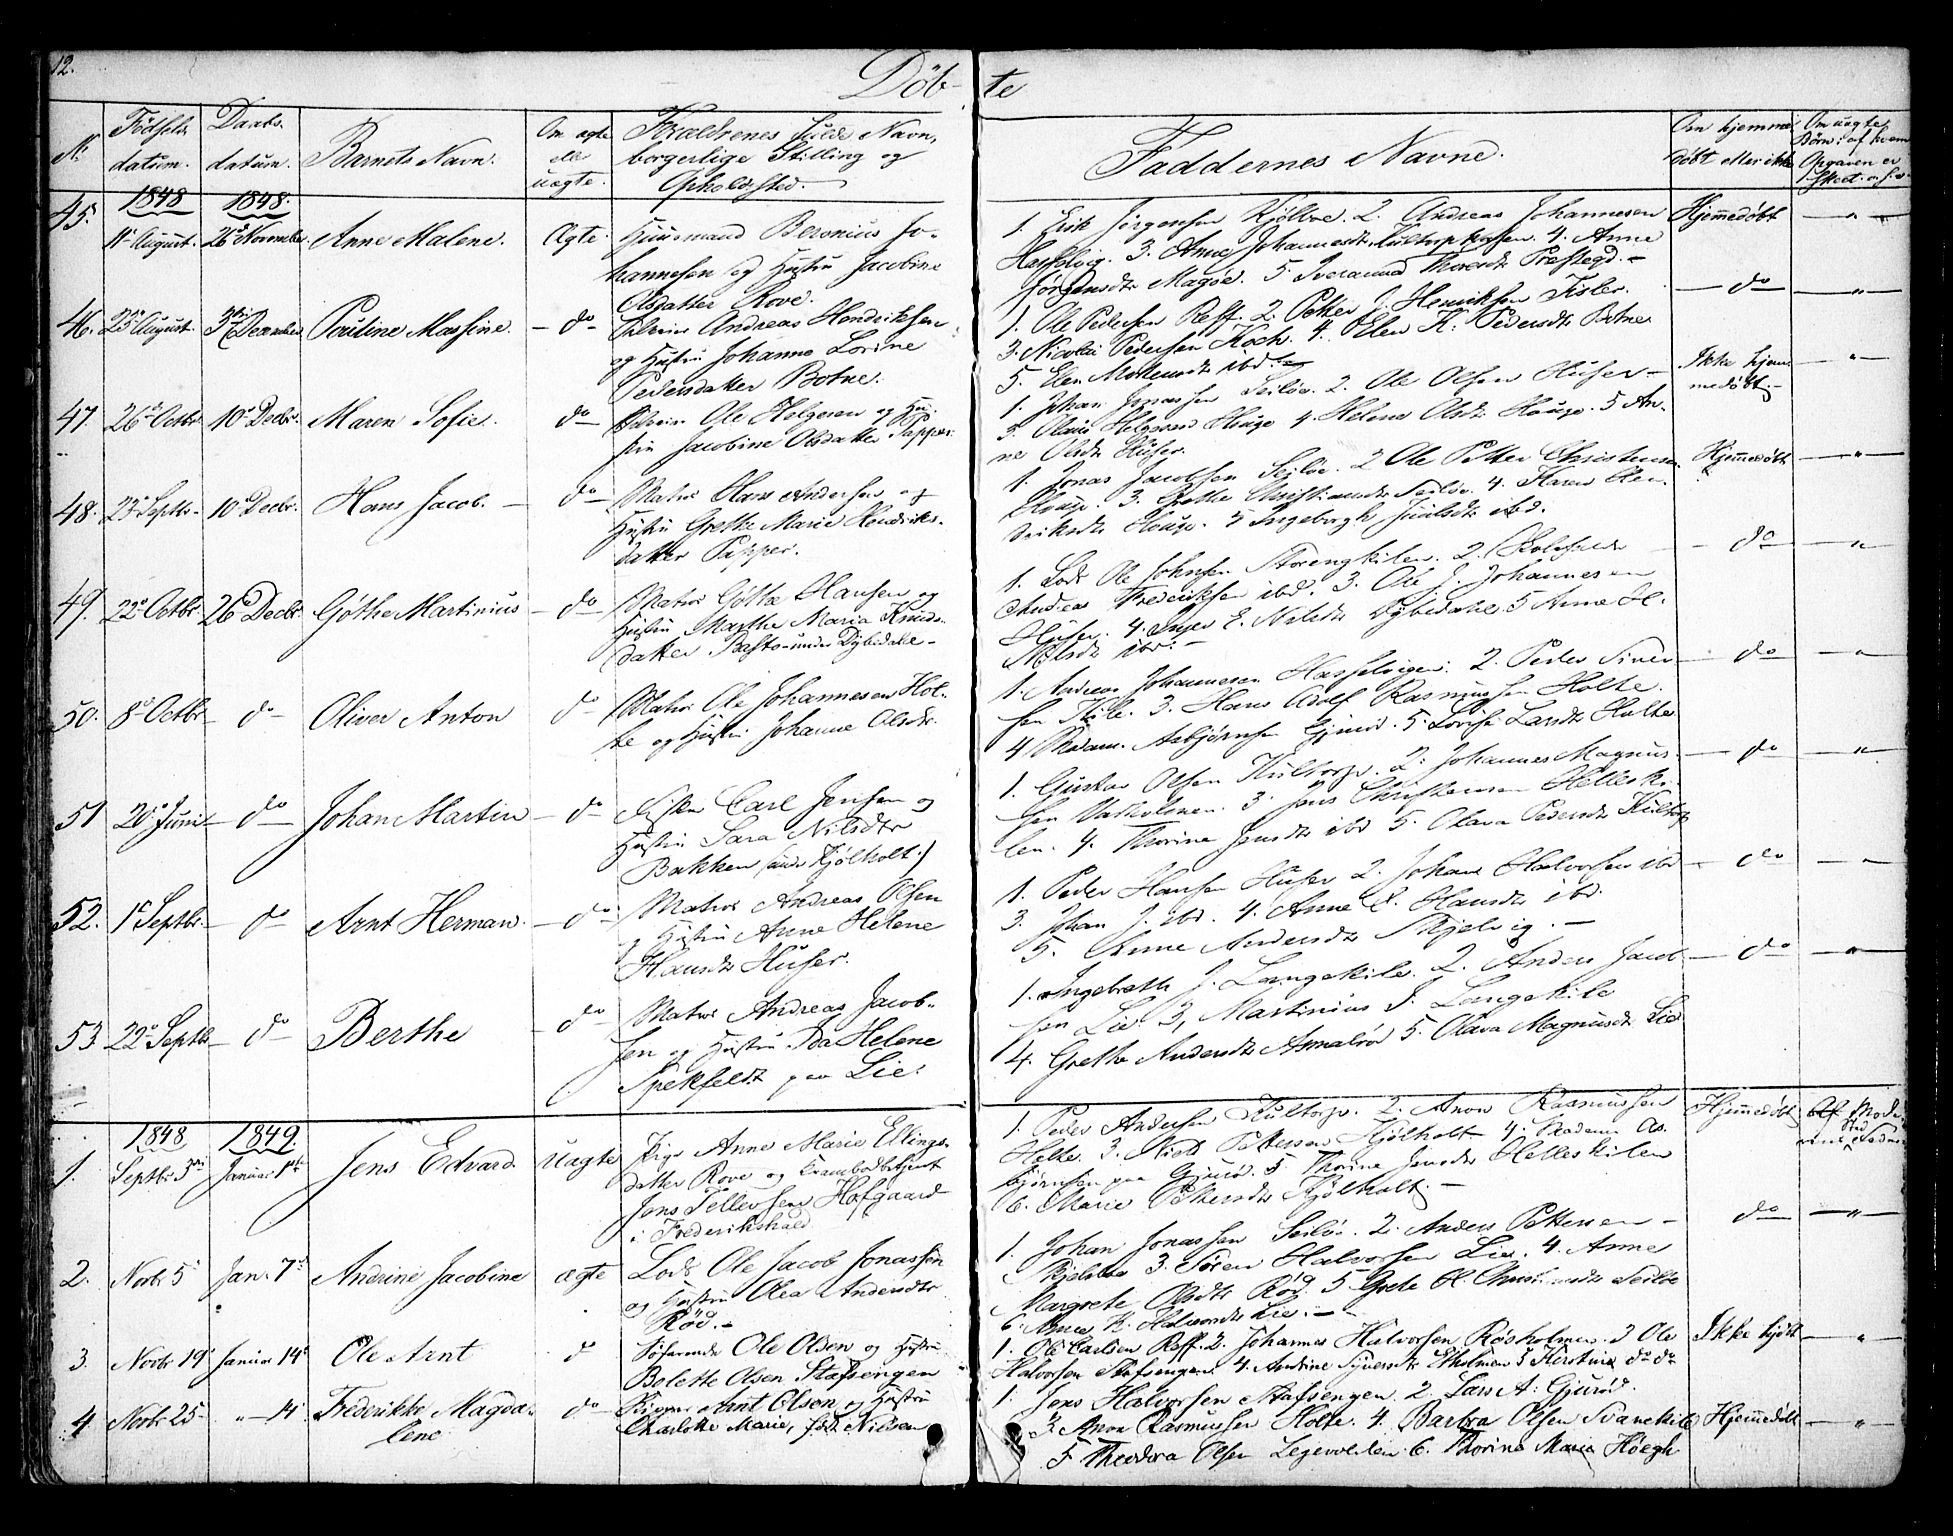 12.
Döb- te
No. Födsels datum. Daabs datum. Barnets Navn. Om ægte eller uægte. Forældrenes fulde Navn, borgerlige Stilling og Opholdssted. Faddernes Navne. Om hjemmedöbt eller ikke Om uægte Börn: af hvem Opgaven er skeet
1848 1848.
45. 11 August. 26 November Anne Malene. Ægte. Huusmand Beronius Jo-
hannesen og Hustru Jacobine
Olsdatter Rove.
1. Erik Jörgensen Kjölboe. 2. Andreas Johannesen Hjemmedöbt
Hasselvig. 3. Anne Johannesdtr. 4. Anne
Jörgensdtr Magöe. 5. Thoresdtr Prestegd.
46. 23 August. 3 December Pauline Massine. do Andreas Hendriksen
og Hustru Johanne Lorine
Pedersdatter Botne.
1. Ole Pedersen Reff. 2. Petter J. Henriksen Tisler. do
3. Nicolai Pedersen Koch. 4. Elen K. Pedersdtr Botne
5. Elen ibd.
47. 26 Octbr 10 Decbr. Maren Sofie. do Ole Helgesen og Hu-
stru Jacobine Olsdatter Papper.
1. Johan Jonassen Seilöe. 2. Ole Olsen Huser Ikke hjem-
medöbt.
3. Olaus Helgesen Houge 4. Helene Olsdtr Houge. 5 An-
ne Olsdtr Huser.
48. 23 Septbr 10 Decbr. Hans Jacob. do Matros Hans Andersen og
Hustru Grethe Marie Hendriks-
datter Papper.
1. Jonas Jacobsen Seilöe. 2 Ole Petter Christensen Hjemmedöbt
Houge. 3. Grethe Christiansdtr Seilöe. 4. Karen Hen-
driksdtr Houge. 5 Ingeborgh ibd.
49. 22 Octbr. 26 Decbr. Göthe Martinius do Matros Göthe Hansen og
Hustru Marthe Maria Knuds-
datter under Dybedahl
1. Lods Ole Johnsen Storengkilen. 2. do
Andreas Frederiksen ibd. 3. Ole J. Johannesen
Huser. 4. Inger E. Nilsdtr Dybedahl 5 Anne H.
Nilsdtr ibd.
50. 8 Octbr do Oliver Anton do Matros Ole Johannesen Hol-
te og Hustru Johanne Olsdtr.
1. Andreas Johannesen Hasselvigen. 2. Peder Siver- do
sen Kile. 3. Hans Adolf Rasmussen Holte.
4 Madam. Asbjörnsen Gjuröd. 5. Lovise Larsdtr Holte
51 20 Juni do Johan Martin do Fisker Carl Jensen og
Hustru Sara Nilsdtr
Bakken (under Kjölholt.)
1. Gustav Olsen Kultorp. 2. Johannes Magnus- do
sen 3. Jens Christensen Helleki-
len. 4. Thorine Jensdtr ibd 5. Olava Pedersdtr Kultorp
52. 1 Septbr. do Arnt Herman. do Matros Andreas Olsen
og Hustru Anne Helene
Hansdtr Huser.
1. Peder Hansen Huser 2. Johan Halvorsen ibd do
3. Johan J. ibd. 4. Anne E. Hansdtr ibd.
5. Anne Andersdtr Skjelvig.
53. 22 Septbr do Berthe do Matros Andreas Jacob-
sen og Hustru Ida Helene
Spekfeldt paa Lie.
1. Ingebreth J. Langekile. 2. Anders Jacob- do
sen Lie. 3, Martinius J. Langekile
4. Grethe Andersdtr 5. Olava Magnusdtr Lie
1848 1849.
1. Septbr 3 Januar 1 Jens Edvard. uægte Pige Anne Marie Ellings-
datter Rove og Krambodbetjent
Jens Tellefsen Hofgaard
i Frederikshald
1. Peder Andersen Kultorp. 2. Anon Rasmussen Hjemmedöbt af Mode-
Holte. 3. Niels Pettersen Kjölholt 4. Madam As-
björnsen paa Gjuröd. 5 Thorine Jensdtr Helleskilen
6. Marie Pettersdtr Kjölholt.
2. Novbr 5 Jan. 7 Andrine Jacobine ægte Lods Ole Jacob Jonassen
og Hustru Olea Andersdtr
Röd.
1. Johan Jonassen Seilöe. 2. Anders Pettersen do
3. Sören Halvorsen Lie. 4. Anne
Margrete Olsdtr Röd. 5 Grete H. Seilöe
6. Anne H. Halvorsdtr Lie.
3. Novbr 19 Januar 14 Ole Arnt do Söfarende Ole Olsen og Hustru
Bolette Olsen Stafsengen
1. Ole Carlsen Reff. 2. Johannes Halvorsen Rösholmen. 3 Ole Ikke hjdöbt
Halvorsen Stafsengen. 4. Andrine Syversdtr Etholmen 5 Kirstine do do
4 Novbr 25 " 14 Frederikke Magda-
lene
do Arnt Olsen og Hustru
Charlotte Marie, föd Nielsen
1. Jens Halvorsen Stafsengen. 2. Lars A. Gjuröd.
3. Anon Rasmussen Holte. 4. Barbra Olsen Svanekil Hjemmedöbt
5 Theodora Olsen 6. Thorine Maria Höegh